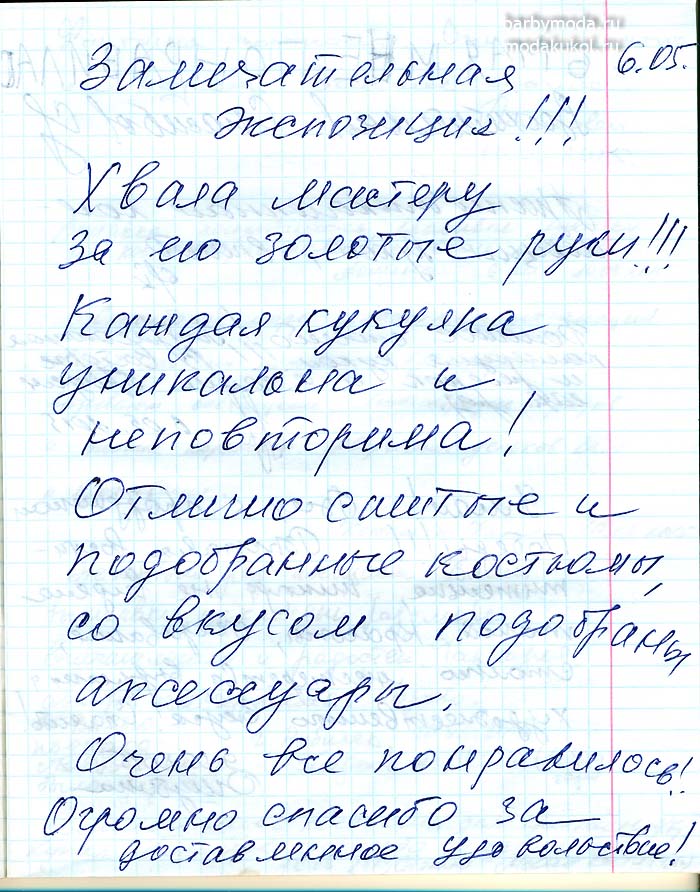 barbymoda.ru
modakukol.ru
6.05.
Замечательная
экспозиция!!!
Хвала мастеру
за его золотые руки!!!
Каждая кукулка
уникальна и
неповторима!
Отлично сшитые и
подобранные костюмы,
со вкусом подобраны
аксессуары.
Очень все понравилось!
Огромно спасибо за
доставленное удовольствие!